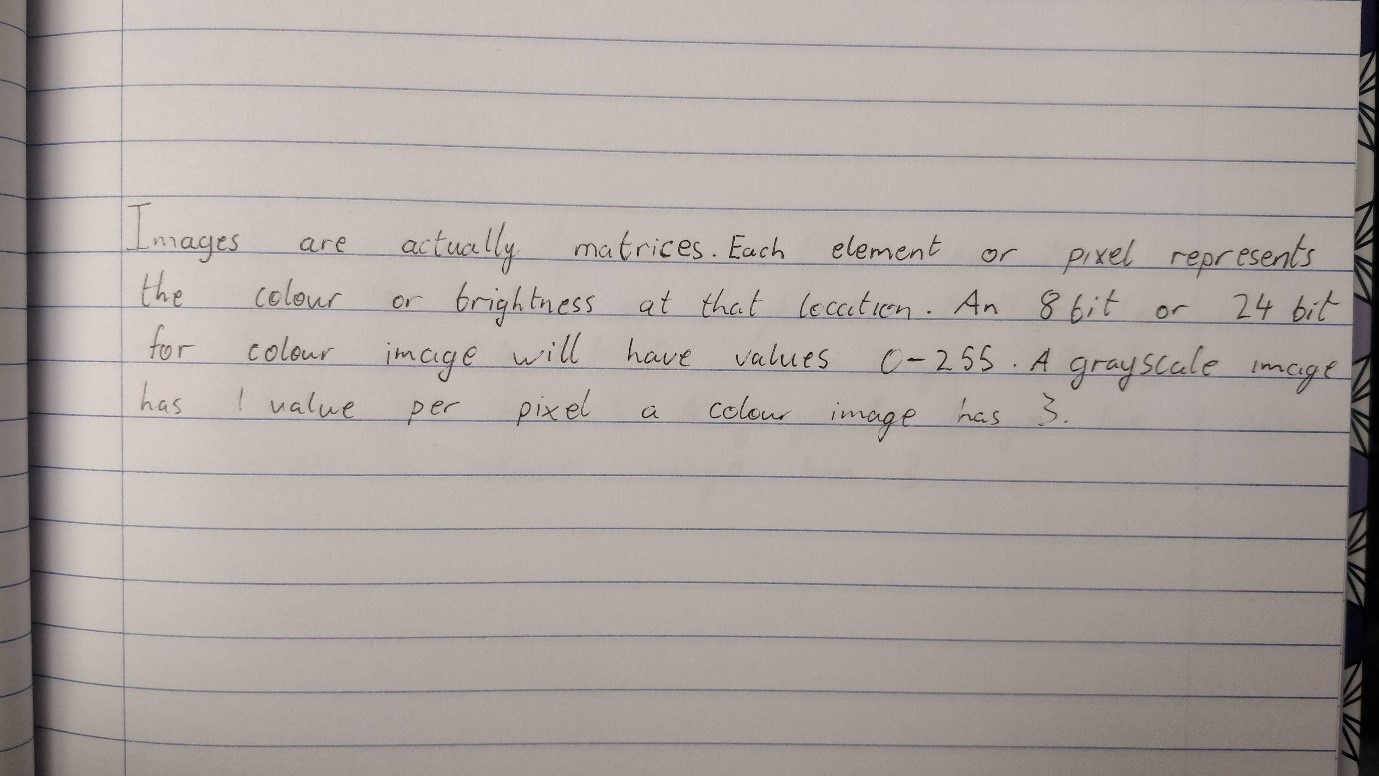 Images are actually matrices. Each element or pixel represents
the colour or brightness at that location. An 8 bit or 24 bit
for colour image will have values 0-255. A grayscale image
has 1 value per pixel a colour image has 3.